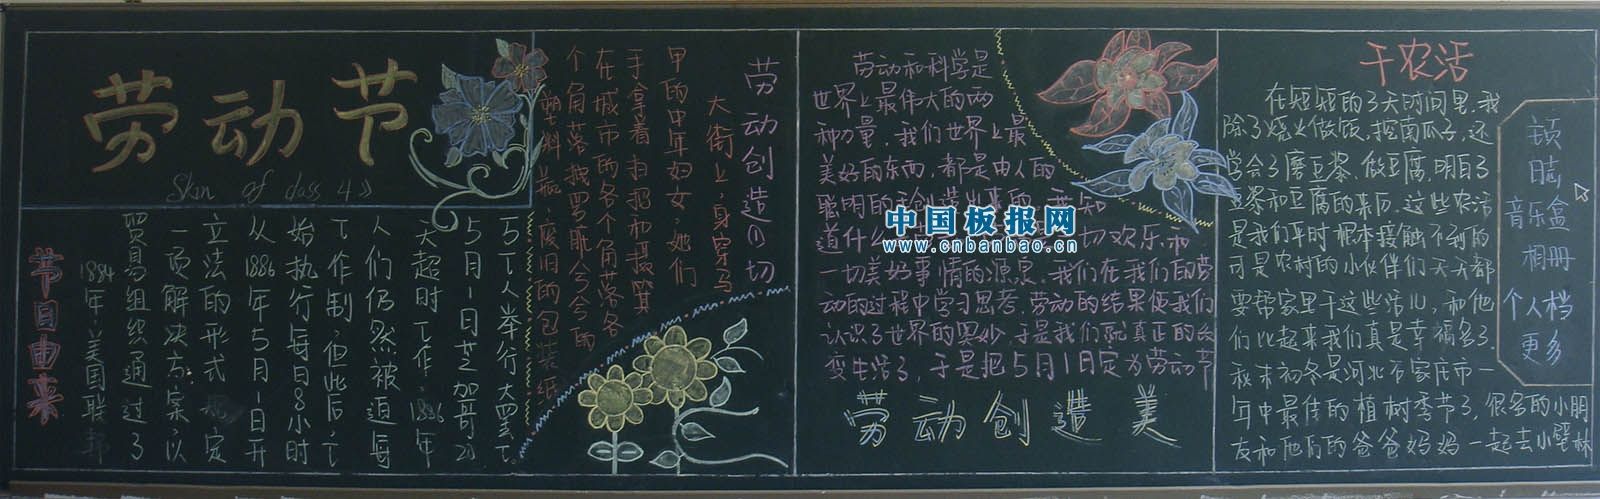 劳动节
Skin of class 4
节日由来
1884年,美国联邦
贸易组织通过了
一项解决方案,以
立法的形式规定
从1886年5月1日开
始执行每日8小时
工作制,但此后,工
人们仍然被迫每
天超时工作,1886年
5月1日芝加哥20
万工人举行大罢工。
劳动创造的一切
大街上,身穿马
甲的中年妇女,她们
手拿着扫把和
在城市的各个角落各
个角落
塑料瓶,废旧的包装纸
劳动和科学是
世界上最伟大的两
种力量,我们世界上最
美好的东西,都是由人的
聪明的手创造出来的,我知
道什么
切欢乐和
一切美好事情的源泉。我们在我们的劳
动的过程中学习思考,劳动的结果使我们
认识了世界的奥妙,于是我们就真正的会
变生活了,于是把5月1日定为劳动节
劳动创造美
中国板报网
www.cnbanbao.cn
干农活
在短短的3天时间里,我
除了烧火做饭,挖南瓜子,还
学会了磨豆浆,做豆腐,明白了
豆浆和豆腐的来历,这些农活
是我们平时根本接触不到的
可是农村的小伙伴们天天都
要帮家里干这些活儿,和他
们比起来我们真是幸福多了。
秋末初冬是河北石家庄市一
年中最佳的植树季节了,很多的小朋
友和他们的爸爸妈妈一起去小壁林
锁
日志
音乐盒
相册
个人档
更多